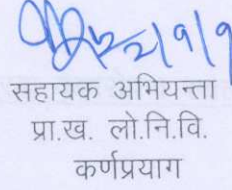 सहायक अभियन्ता
प्रा.ख. लो.नि.वि.
कर्णप्रयाग